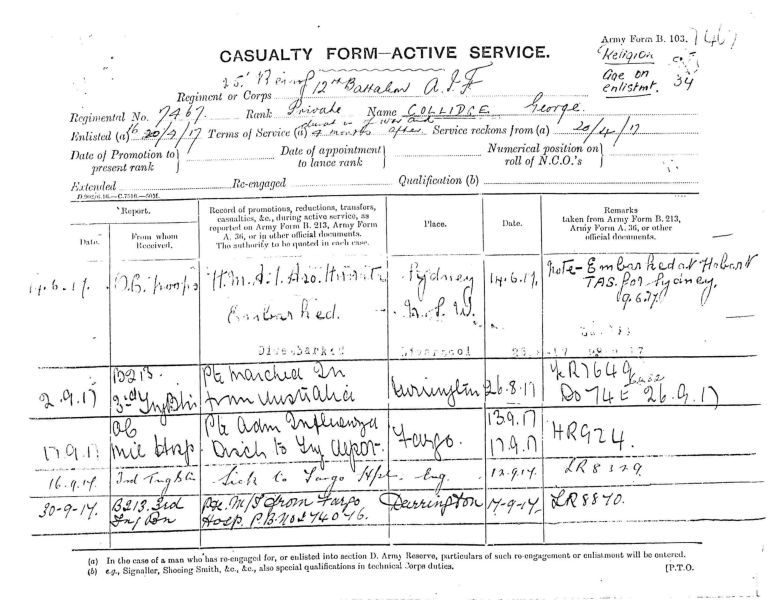 Army Form B. 103. 7467
CASUALTY FORM—ACTIVE SERVICE.
Religion
Age on
enlistmt. 34
25 Reinf 12th Battalion A.I.F
Regiment or Corps
Regimental No. 7467 Rank Private Name COLLIDGE George
Enlisted (a) 20/4/17 Terms of Service (a) 4 months after Service reckons from (a) 20/4/17
Date of Promotion to present rank
Date of appointment to lance rank
Numerical position on roll of N.C.O.'s
Extended Re-engaged Qualification (b)
Report.
Date.
From whom Received.
Record of promotions, reductions, transfers, casualties, &c., during active service, as reported on Army Form B. 213, Army Form A. 36, or in other official documents. The authority to be quoted in each case.
Place.
Date.
Remarks
taken from Army Form B. 213, Army Form A. 36, or other official documents.
14.6.17. O.C. Troops H.M.A.T. Embarked. Sydney N.S.W. 14.6.17. Note-Embarked at Hobart
TAS. for Sydney.
Disembarked Liverpool
2.9.17 B213. 3rd Tng Btn Pte marched In from Australia Durrington 26.8.17 KR7649
DO 74 26.9.17
17.9.17 OC Mil Hosp Pte Adm Influenza Disch to Tng depot. Fargo. 13.9.17
17.9.17 HR924.
16.9.17. 3rd Tng Btn Sick to Fargo Hpl. Eng. 12.9.17. LR8329
30-9-17. B213. 3rd Tng Bn Pte. M/I from Fargo Hosp. Durrington 17-9-17. LR8870.
(a) In the case of a man who has re-engaged for, or enlisted into section D. Army Reserve, particulars of such re-engagement or enlistment will be entered.
(b) e.g., Signaller, Shoeing Smith, &c., &c., also special qualifications in technical Corps duties. [P.T.O.